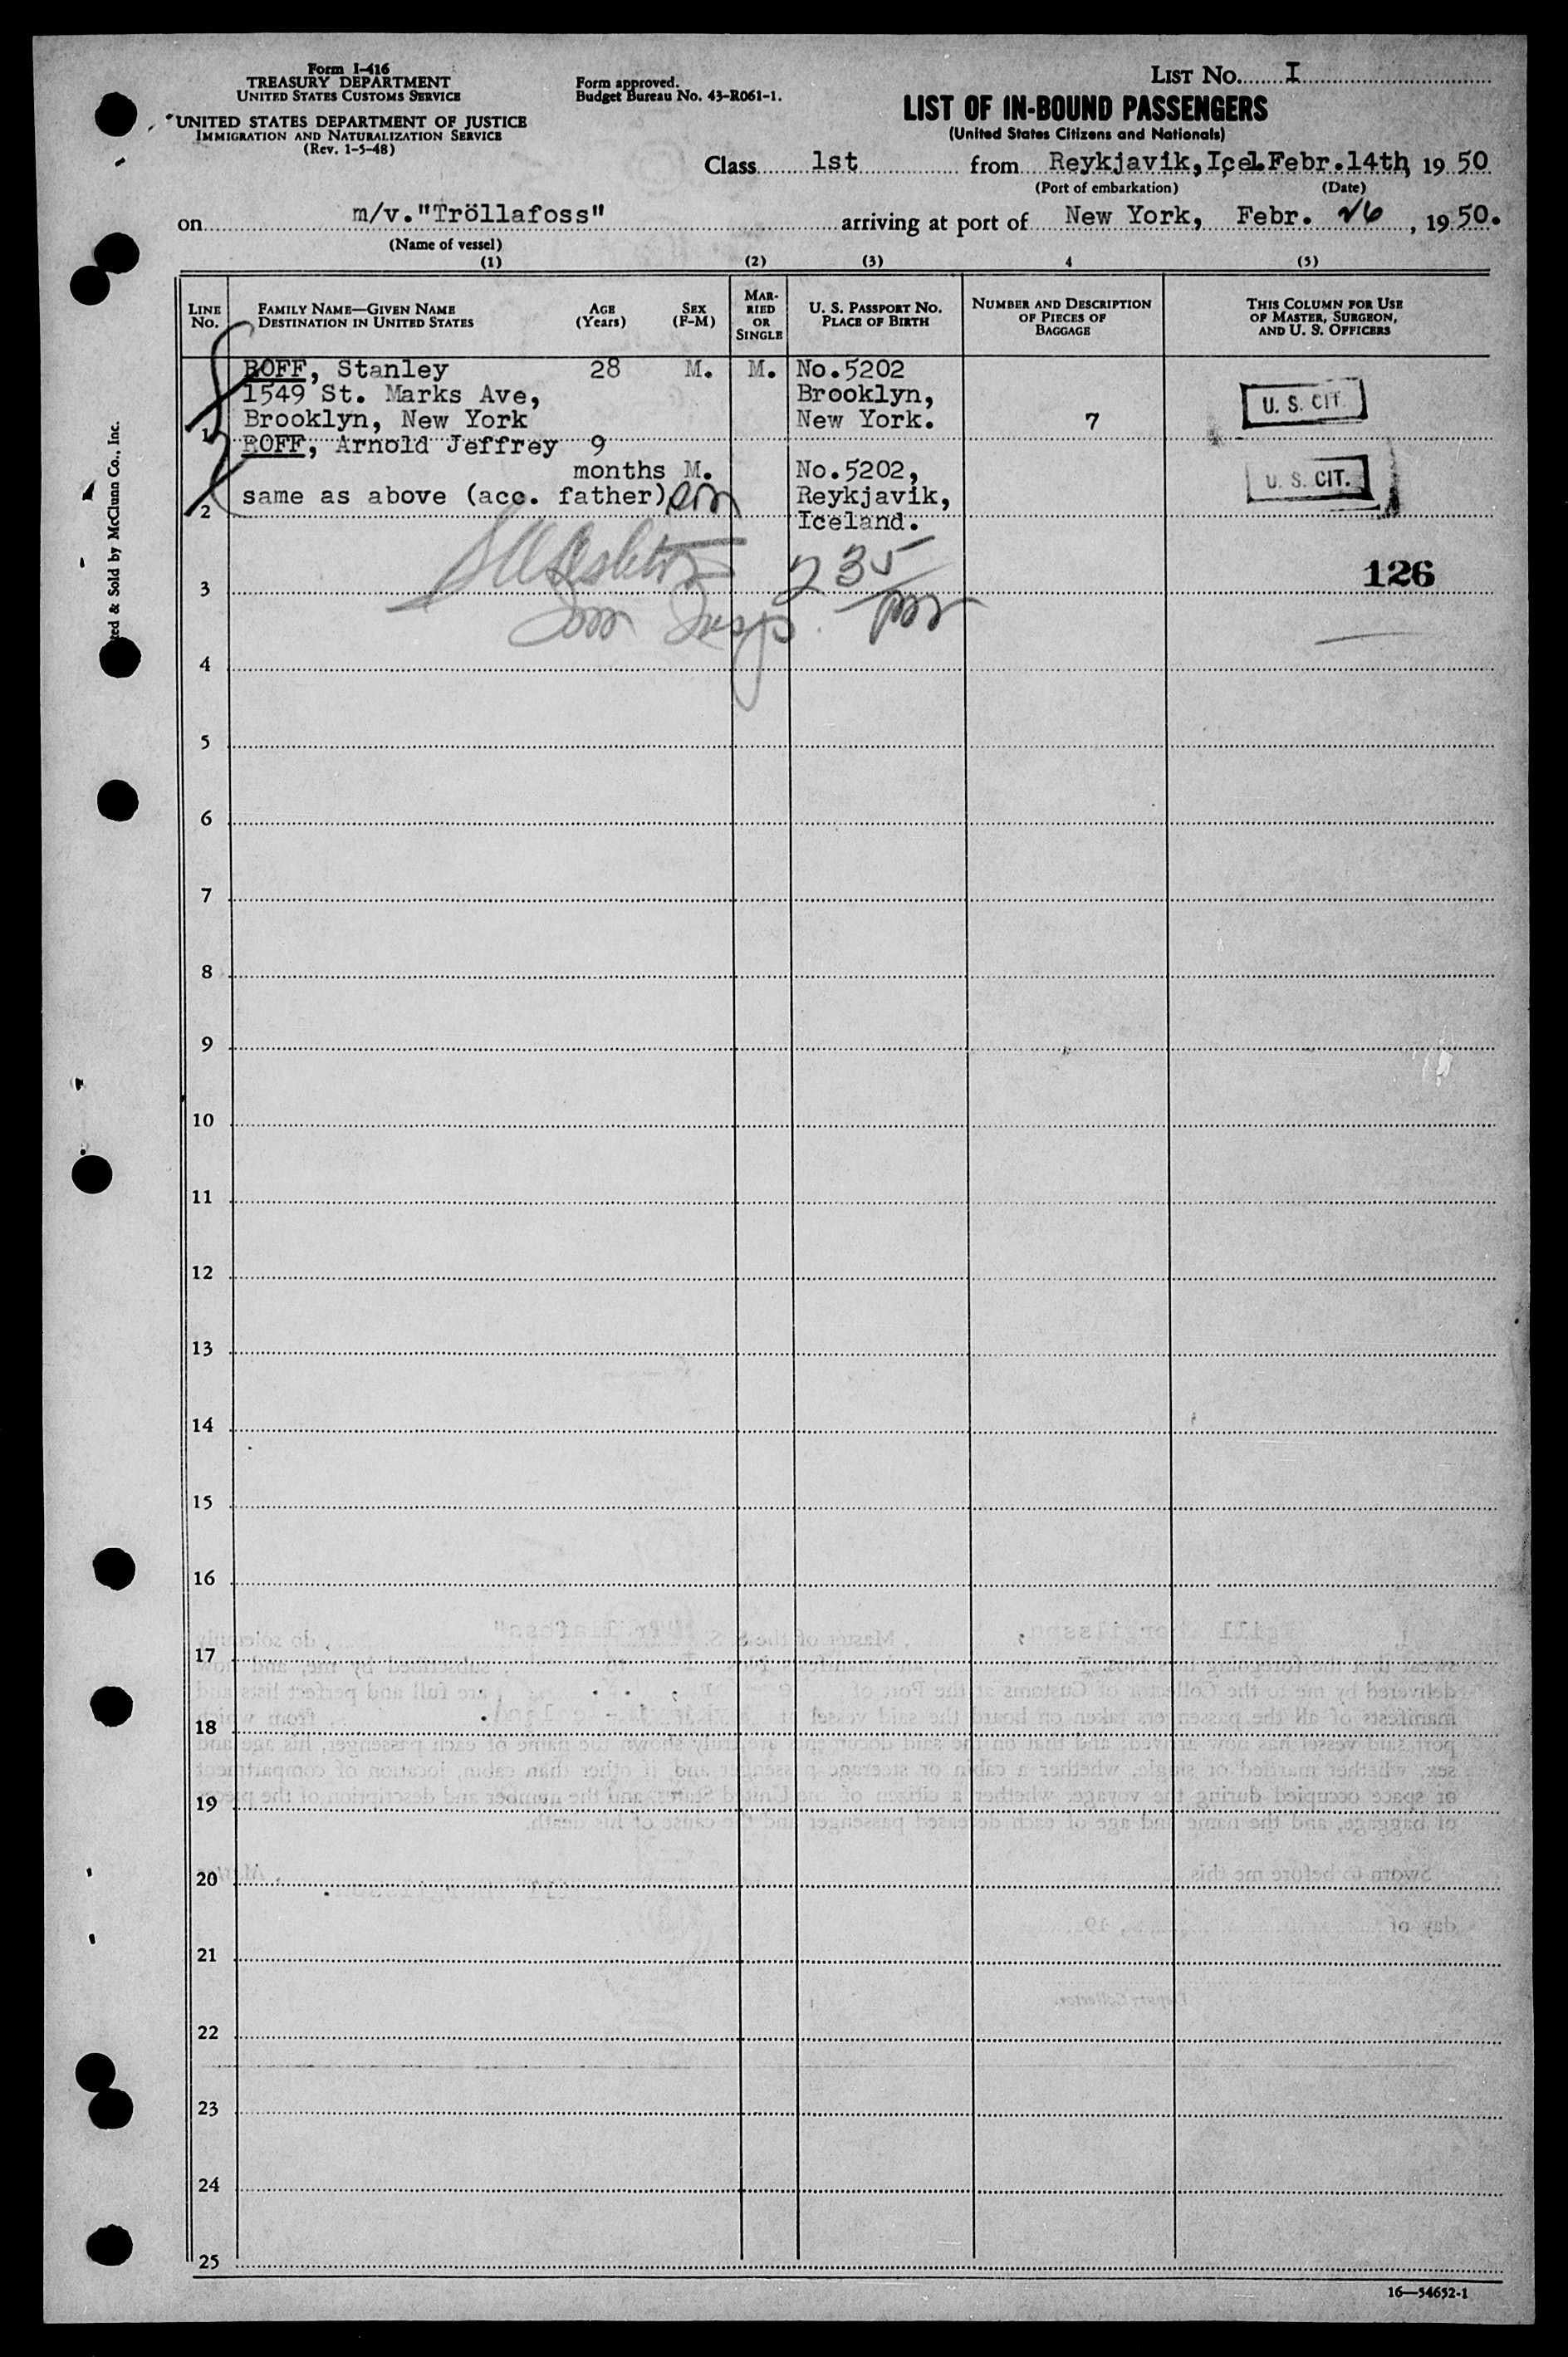 Form I-416
TREASURY DEPARTMENT
UNITED STATES CUSTOMS SERVICE
UNITED STATES DEPARTMENT OF JUSTICE
IMMIGRATION AND NATURALIZATION SERVICE
(Rev. 1-5-48)
Form approved.
Budget Bureau No. 43-R061-1.
LIST No. I
LIST OF IN-BOUND PASSENGERS
(United States Citizens and Nationals)
Class 1st from Reykjavik, Icel. Febr. 14th, 19 50
(Port of embarkation) (Date)
on m/v. "Tröllafoss" arriving at port of New York, Febr. 26, 19 50.
(Name of vessel)
(1) (2) (3) 4 (5)
LINE No. FAMILY NAME—GIVEN NAME DESTINATION IN UNITED STATES AGE (Years) SEX (F-M) MARRIED OR SINGLE U. S. PASSPORT NO. PLACE OF BIRTH NUMBER AND DESCRIPTION OF PIECES OF BAGGAGE THIS COLUMN FOR USE OF MASTER, SURGEON, AND U. S. OFFICERS
ROFF, Stanley 28 M. M. No.5202
1549 St. Marks Ave, Brooklyn,
Brooklyn, New York New York. 7 U. S. CIT.
1 ROFF, Arnold Jeffrey 9
months M. No.5202, U. S. CIT.
same as above (acc. father) Reykjavik,
2 Iceland.
235
3 126
Imm Insp.
4
5
6
7
8
9
10
11
12
13
14
15
16
17
18
19
20
21
22
23
24
25
16—54652-1
& Sold by McClunn Co., Inc.